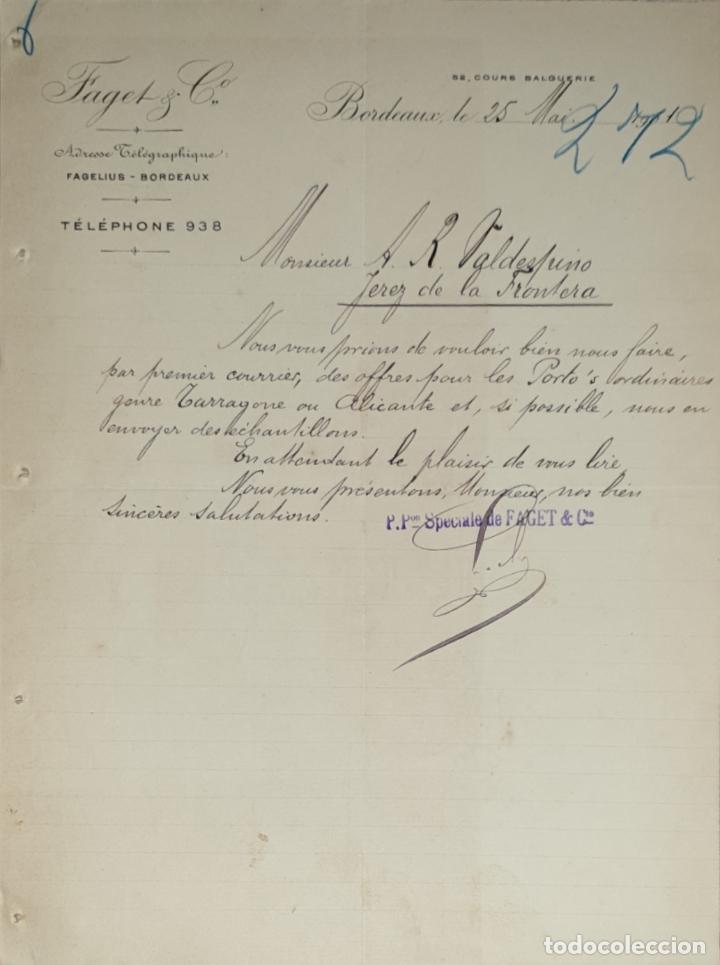 Faget & Cº
52, COURS BALGUERIE
Bordeaux, le 25 Mai
212
Adresse Télégraphique:
FAGELIUS - BORDEAUX
TÉLÉPHONE 938
Monsieur A. R. Valdespino
Jerez de la Frontera
Nous vous prions de vouloir bien nous faire,
par premier courrier, des offres pour les Porto's ordinaires
genre Tarragone ou Alicante et, si possible, nous en
envoyer des échantillons.
En attendant le plaisir de vous lire,
Nous vous présentons, Monsieur, nos bien
sincères salutations.
P. Pon Spéciale de FAGET & Cie
todocoleccion